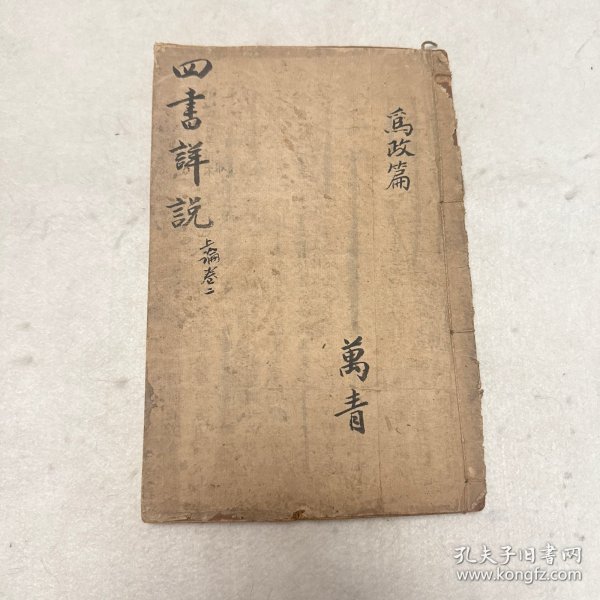 為政篇
萬青
四書詳説
上論卷二
孔夫子旧书网
www.kongfz.com